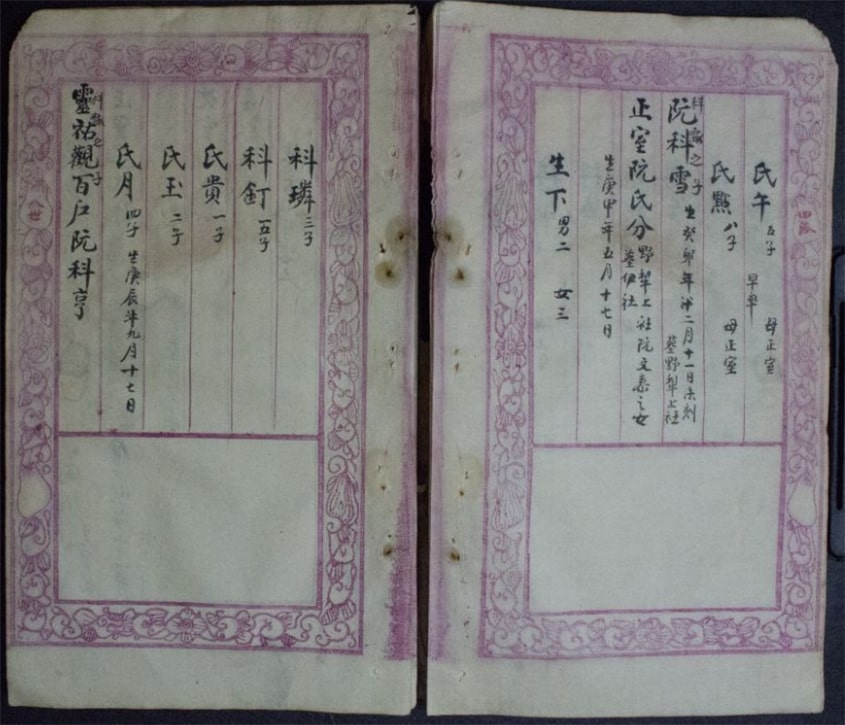 氏午 五子 早卒 母正室
氏點 八子 母正室
阮科雪 科
之子 生癸卯年 二月十一日未刻
墓野犁上社
正室阮氏分 野犁上社阮文泰之女
墓伊社
生庚甲年五月十七日
生下 男二 女三
四派
科璘 三子
科釘 五子
氏貴 一子
氏玉 二子
氏月 四子 生庚辰年九月十七日
科
之子
靈祐觀百户阮科亨
八世